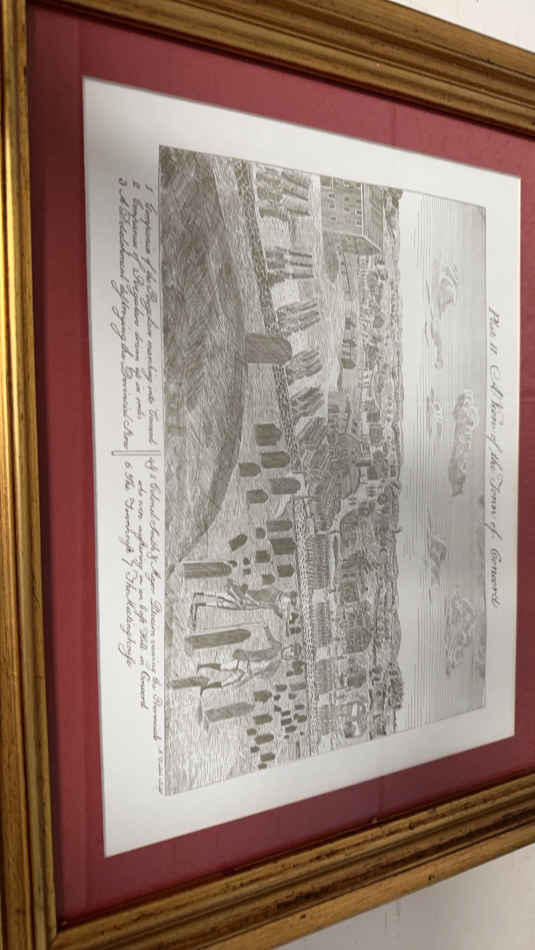 Plate II. A View of the Town of Concord
1 Companies of the Regulars marching into Concord
2 Companies of Regulars drawn up in order
3 A Detachment destroying the Provincial Stores
4 & 5 Colonel Smith & Major Pitcairn viewing the Provincials
who were mustering on an East Hill in Concord
6 The Townhouse 7 The Meetinghouse